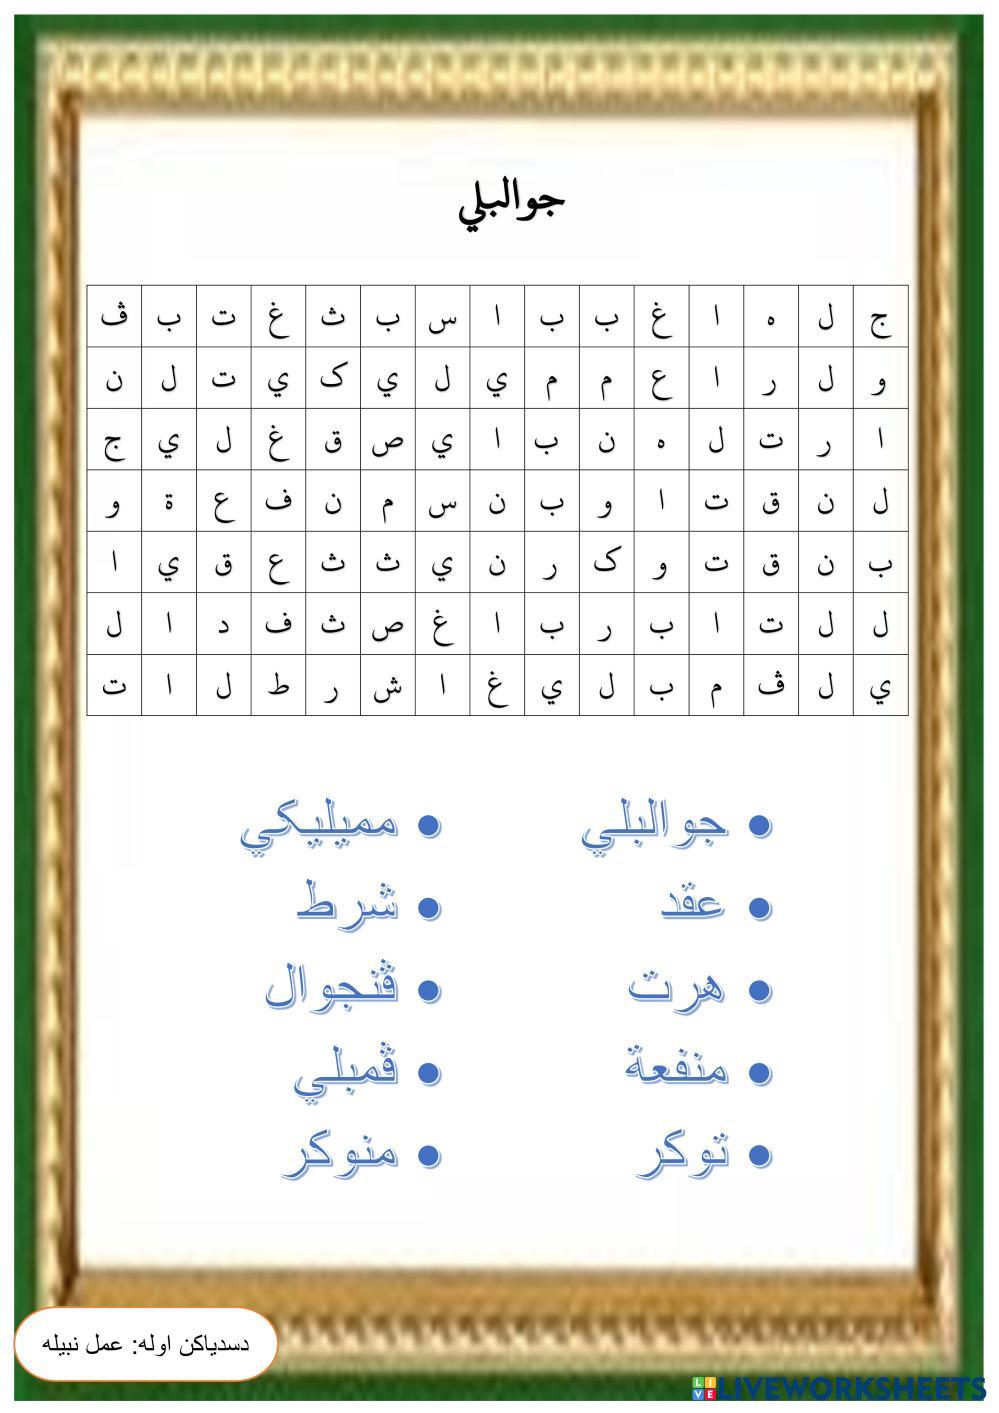 جوالبلي
ج ل ه ا غ ب ب ا س ب ث غ ت ب ڤ
و ل ر ا ع م م ي ل ي ک ي ت ل ن
ا ر ت ل ه ن ب ا ي ص ق غ ل ي ج
ل ن ق ت ا و ب ن س م ن ف ع ة و
ب ن ق ت و ک ر ن ي ث ث ع ق ي ا
ل ل ت ا ب ر ب ا غ ص ث ف د ا ل
ي ل ڤ م ب ل ي غ ا ش ر ط ل ا ت
• جوالبلي • مميليکي
• عقد • شرط
• هرت • ڤنجوال
• منفعة • ڤمبلي
• توکر • منوکر
دسدياکن اوله: عمل نبيله
LIVE LIVEWORKSHEETS